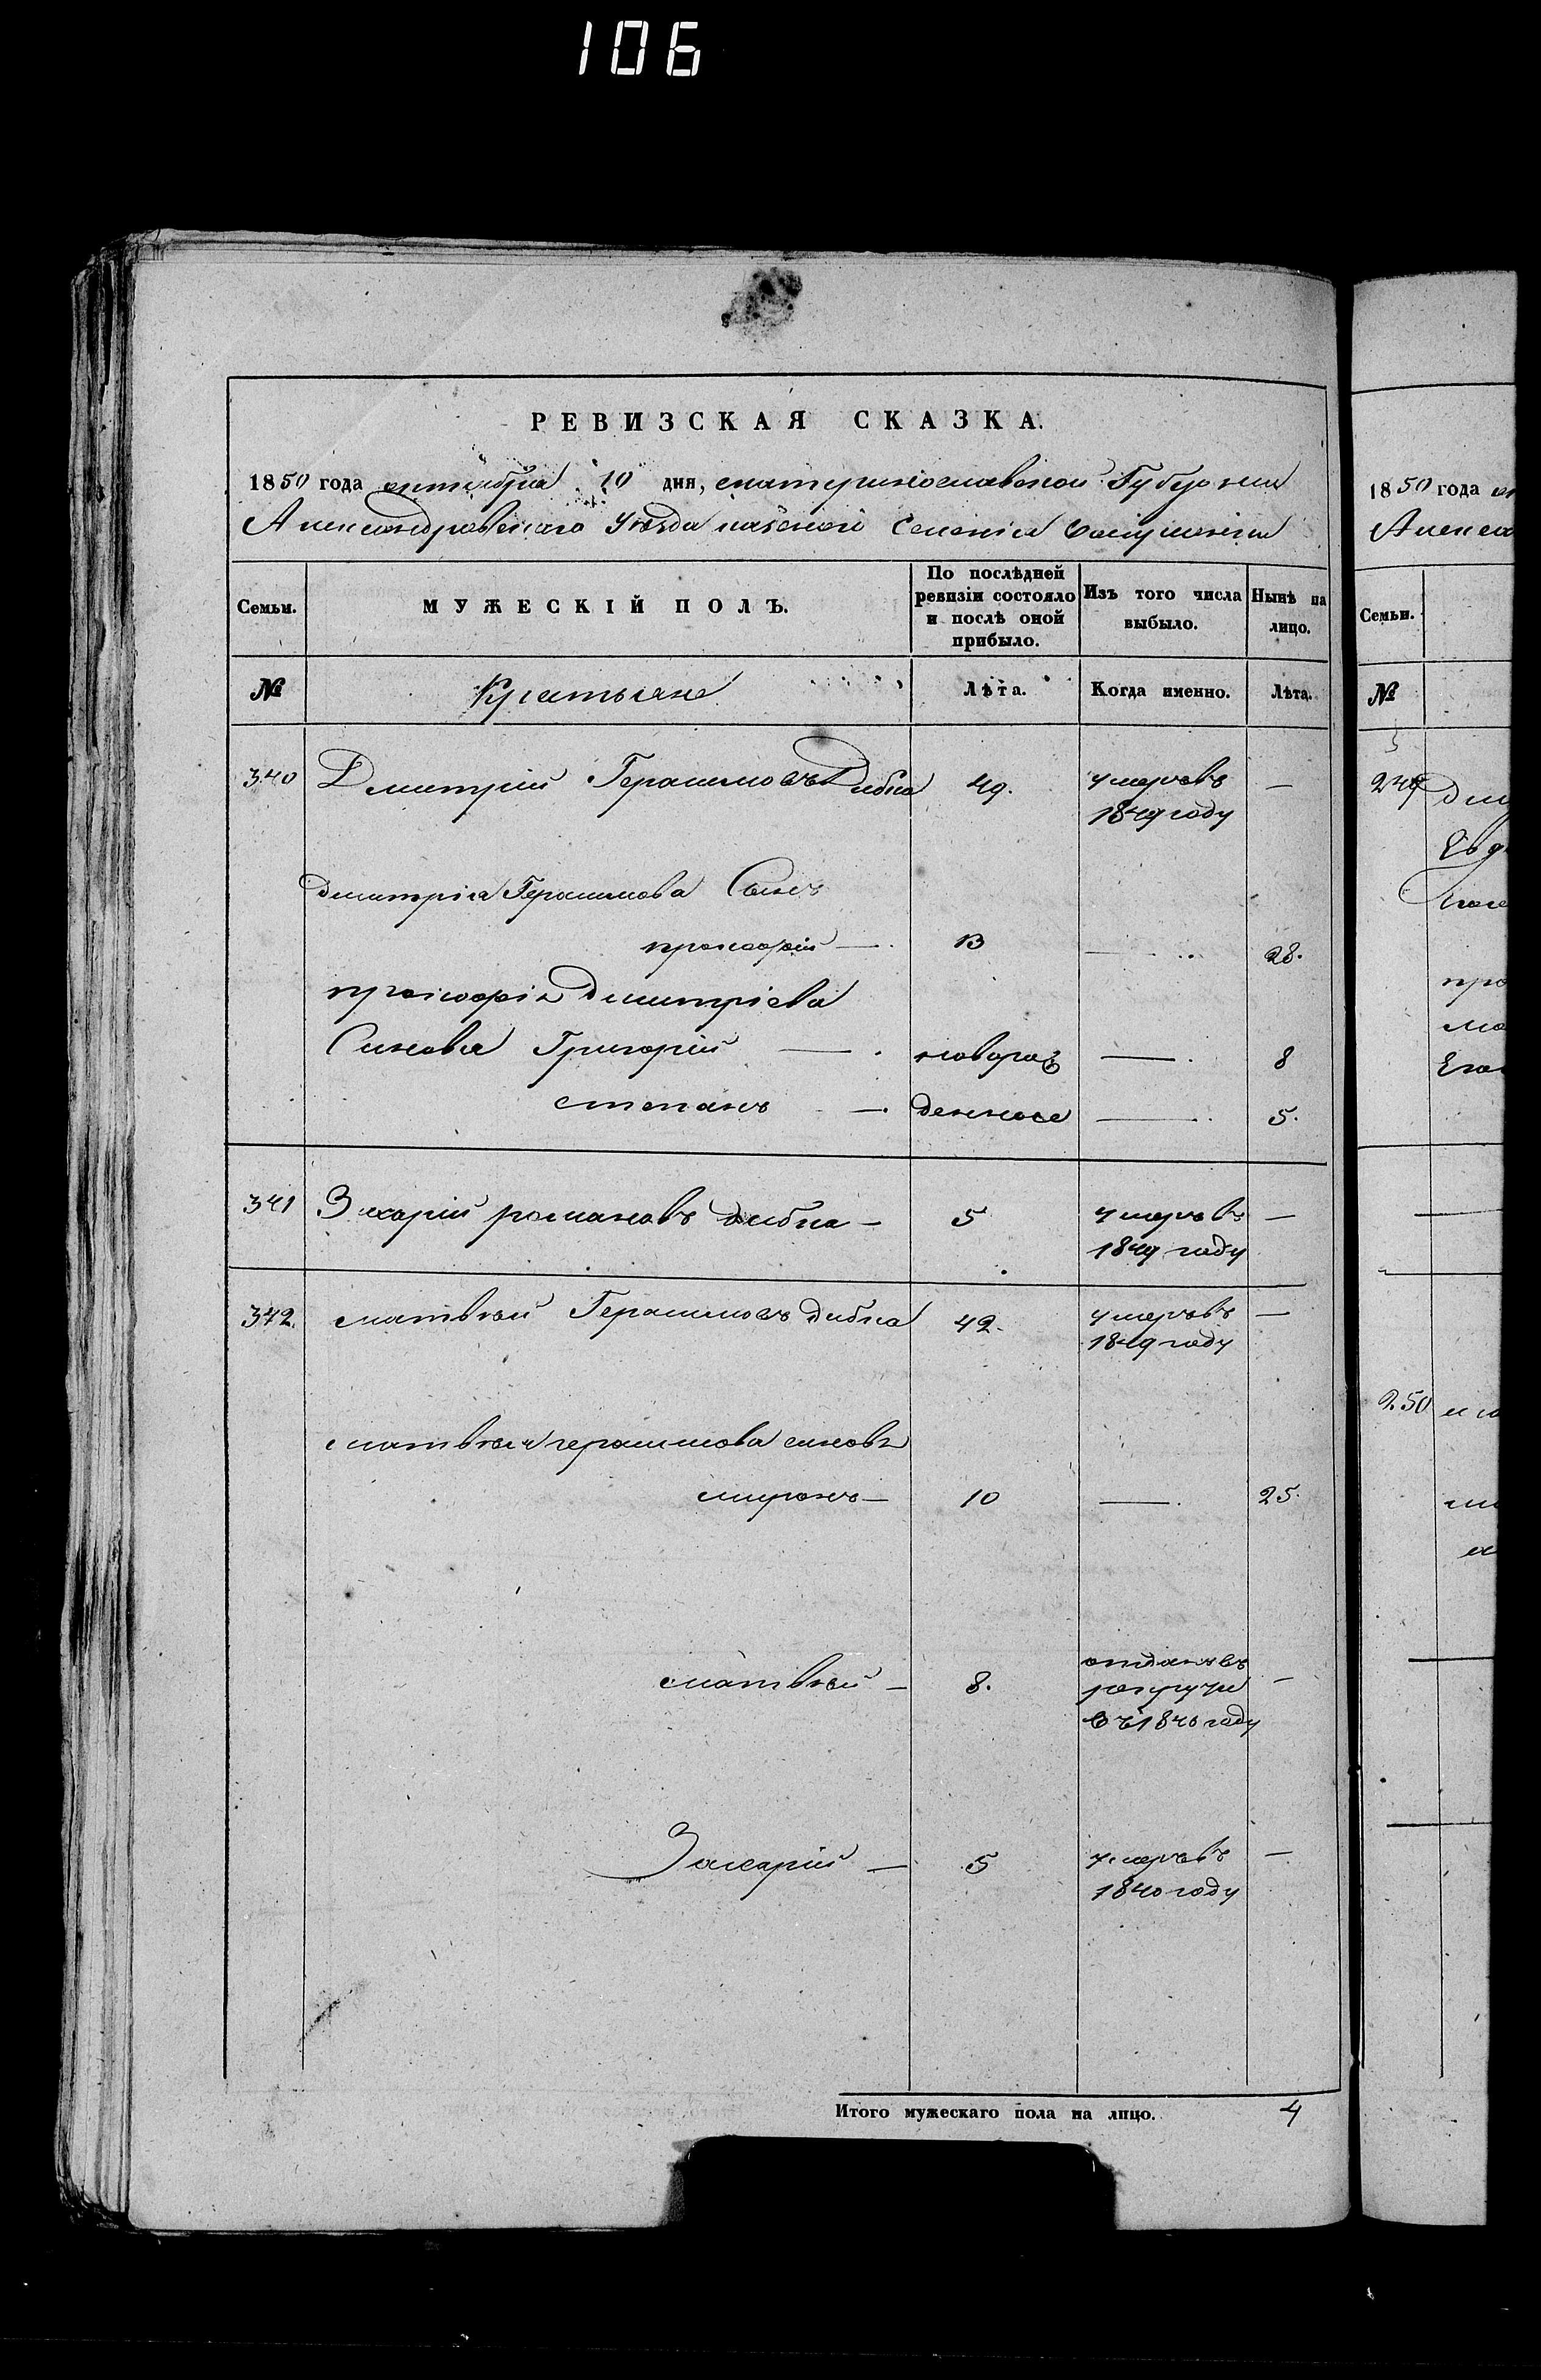 106
РЕВИЗСКАЯ СКАЗКА.
1850 года октября 10 дня, екатеринославской Губернии
Александровского Уезда казеной Селенія
Семьи.
МУЖЕСКІЙ ПОЛЪ.
По послѣдней ревизіи состояло и послѣ оной прибыло.
Изъ того числа выбыло.
Нынѣ на лицо.
№
Крестьяне
Лѣта.
Когда именно.
Лѣта.
340 Дмитрий Герасимовъ Дибка 49. умеръ въ —
1849 году
Дмитрія Герасимова Сынъ
прокофій — 13 — 28.
прокофія Дмитріева
Синовья Григорій — новораж — 8
степанъ — денное — 5.
341 Захарій романовъ дибка — 5 умеръ въ —
1849 году
342. матвѣй Герасимовъ дибка 42. умеръ въ —
1849 году
матвѣя герасимова синовья
миронъ — 10 — 25.
отданъ въ
матвѣй — 8. рекруты —
въ 1840 году
Захарій — 5 умеръ въ —
1840 году
Итого мужескаго пола на лицо. 4
1850 года
Семьи.
№
249
250